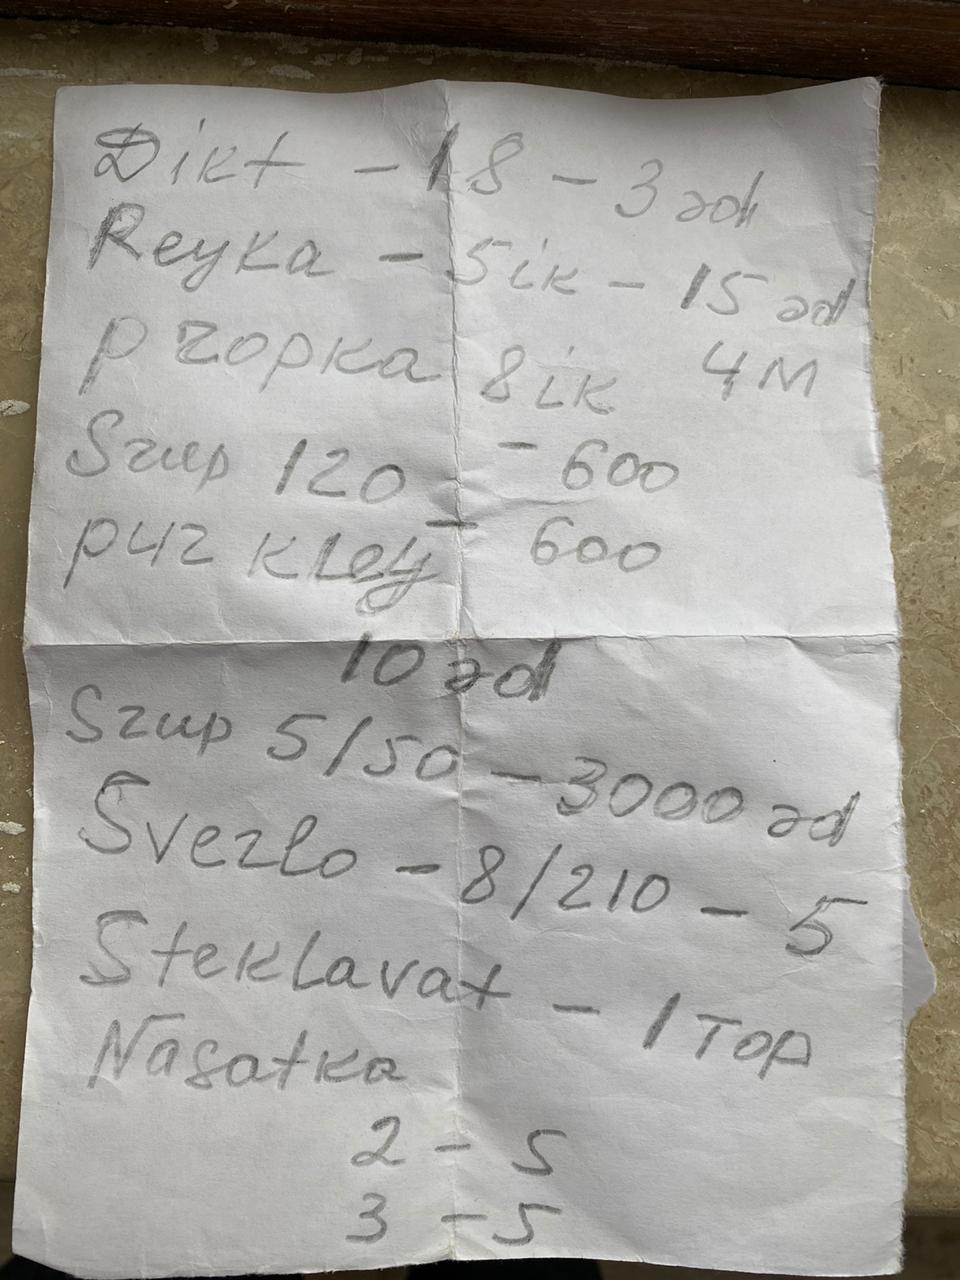 Dikt - 18 - 3 əd
Reyka - 5ik - 15 əd
probka 8ik 4M
Srup 120 - 600
puz kley - 600
10 əd
Srup 5/50 - 3000 əd
Sverlo - 8/210 - 5
Steklavat - 1 Top
Nasatka
2 - 5
3 - 5